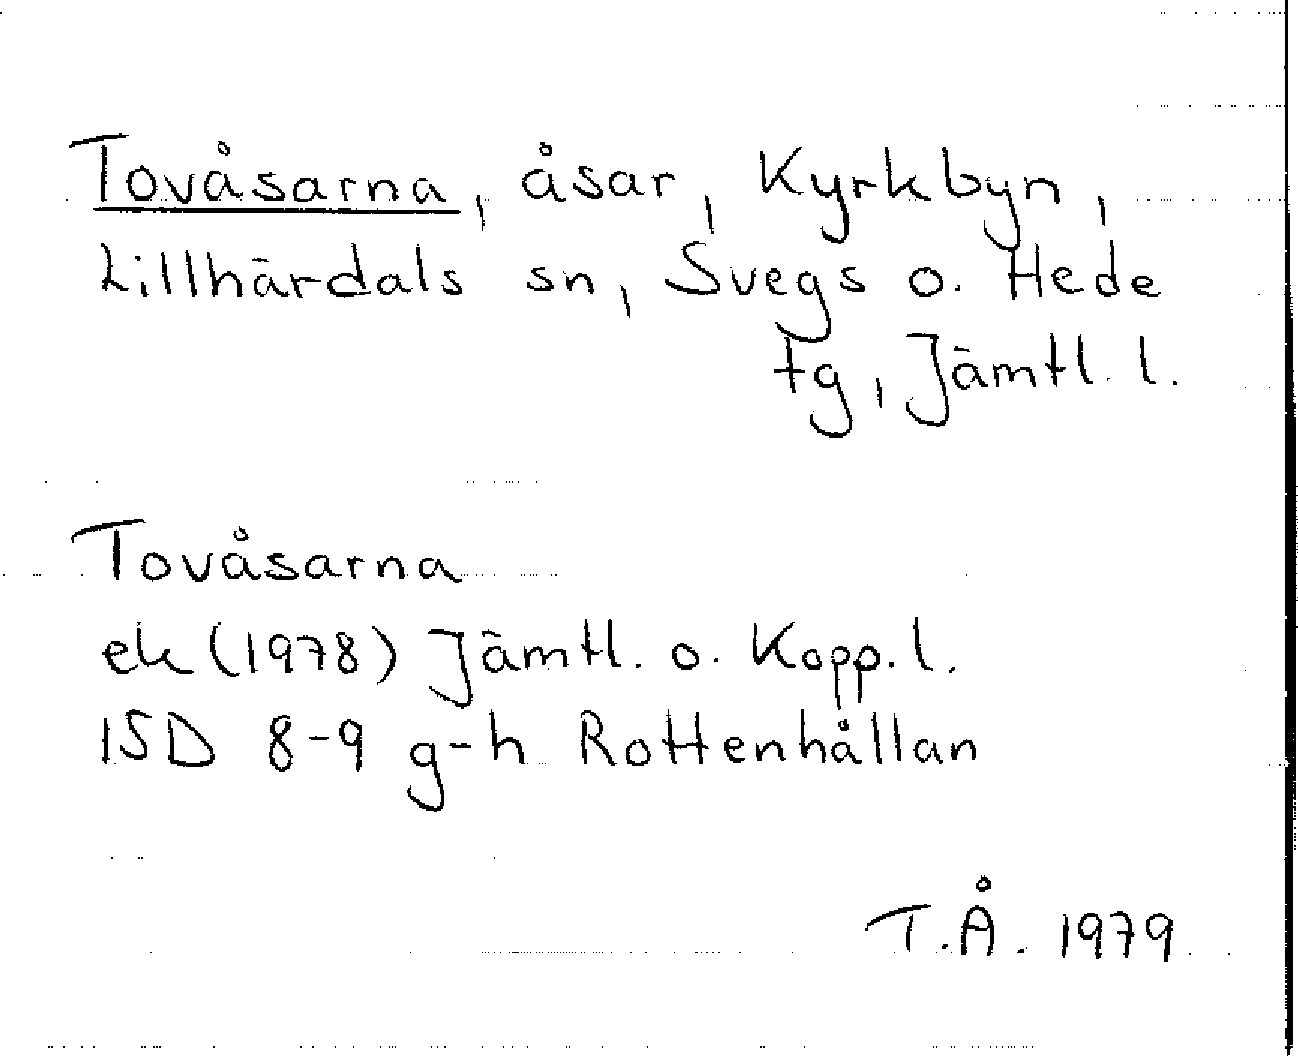 Tovåsarna, åsar, Kyrkbyn,
Lillhärdals sn, Svegs o. Hede
tg, Jämtl. l.
Tovåsarna
ek (1978) Jämtl. o. Kopp. l.
15D 8-9 g-h Rottenhållan
T.Å. 1979